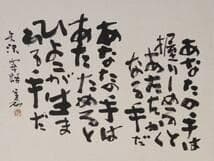 あなたの手は
握りしめると
あたたかく
なる手だ
あなたの手は
あたためると
ひよこが生ま
れる手だ